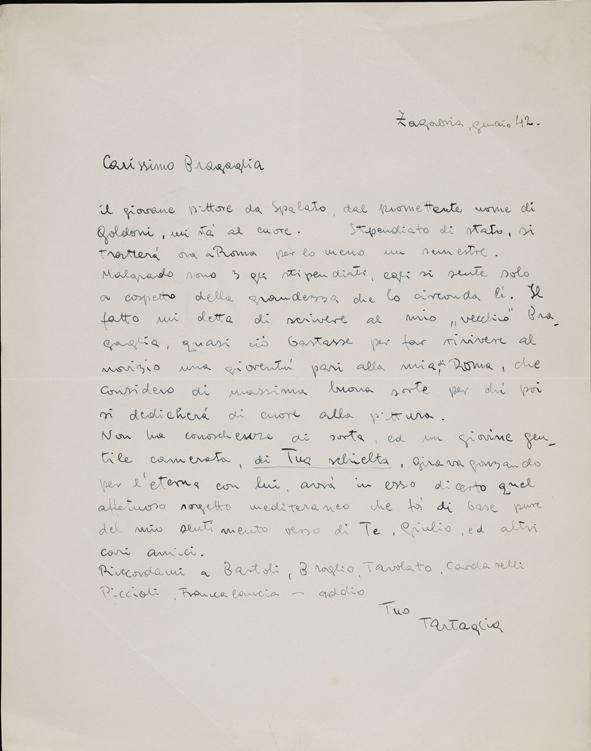 Zagabria, gennaio 42.
Carissimo Bragaglia
il giovane pittore da Spalato, dal promettente nome di
Goldoni, mi stà al cuore. Stipendiato di stato, si
tratterà ora a Roma per lo meno un semestre.
Malgrado sono 3 gli stipendiati, egli si sente solo
a cospetto della grandezza che lo circonda lí. Il
fatto mi detta di scrivere al mio „vecchio" Bra-
gaglia, quasi ciò bastasse per far rivivere al
novizio una gioventú pari alla mia, di Roma, che
considero di massima buona sorte per chi poi
si dedicherá di cuore alla pittura.
Non ha conoschenza di sorta, ed un giovine gen-
tile camerata, di Tua schielta, giravagonzando
per l'eterna con lui, avrá in esso di certo quel
affettuoso soggetto mediteraneo che fú di base pure
del mio sentimento verso di Te, Giulio, ed altri
cari amici.
Riccordami a Bartoli, Broglio, Tavolato, Cardarelli
Piccioli, Francalancia – addio
Tuo
Tartaglia